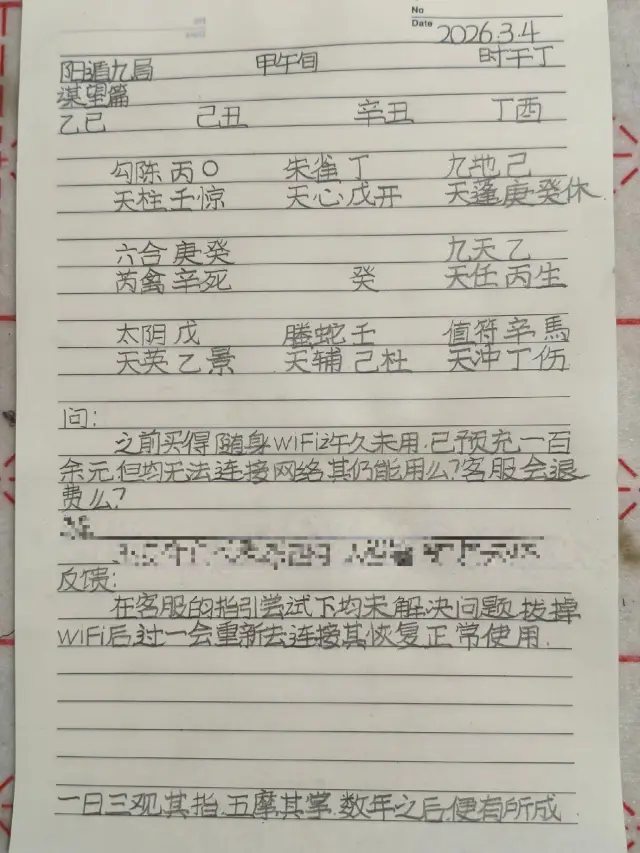 No
Date 2026.3.4
阳遁九局 甲午旬 时干丁
谋望篇
乙巳 己丑 辛丑 丁酉
勾陈丙〇 朱雀丁 九地己
天柱壬惊 天心戊开 天蓬庚癸休
六合庚癸 九天乙
芮禽辛死 癸 天任丙生
太阴戊 螣蛇壬 值符辛馬
天英乙景 天辅己杜 天冲丁伤
问:
之前买得随身WiFi许久未用.已预充一百
余元.但均无法连接网络.其仍能用么?客服会退
费么?
反馈:
在客服的指引尝试下均未解决问题.拔掉
WiFi后过一会重新去连接其恢复正常使用.
一日三观其指.五摩其掌.数年之后.便有所成